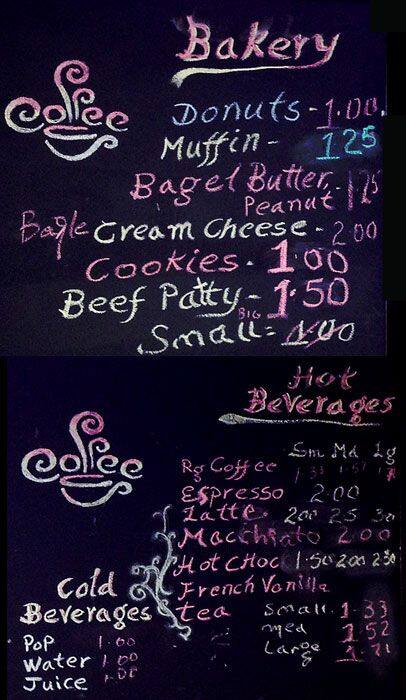 Bakery
Coffee
Donuts - 1.00
Muffin - 125
Bagel Butter, - 125
Peanut
Bagle Cream Cheese - 2.00
Cookies - 1.00
Beef Patty - BIG 1.50
Small = 1.00
Hot
Beverages
Coffee
Sm Md Lg
Rg Coffee 1.33
Espresso 2.00
Latte 200 25 30
Macchinto 2.00
Hot Choc 1.50 200 230
French Vanilla
Tea Small 1.33
med 1.52
Large 1.71
Cold
Beverages
Pop 1.00
Water 1.00
Juice 1.00